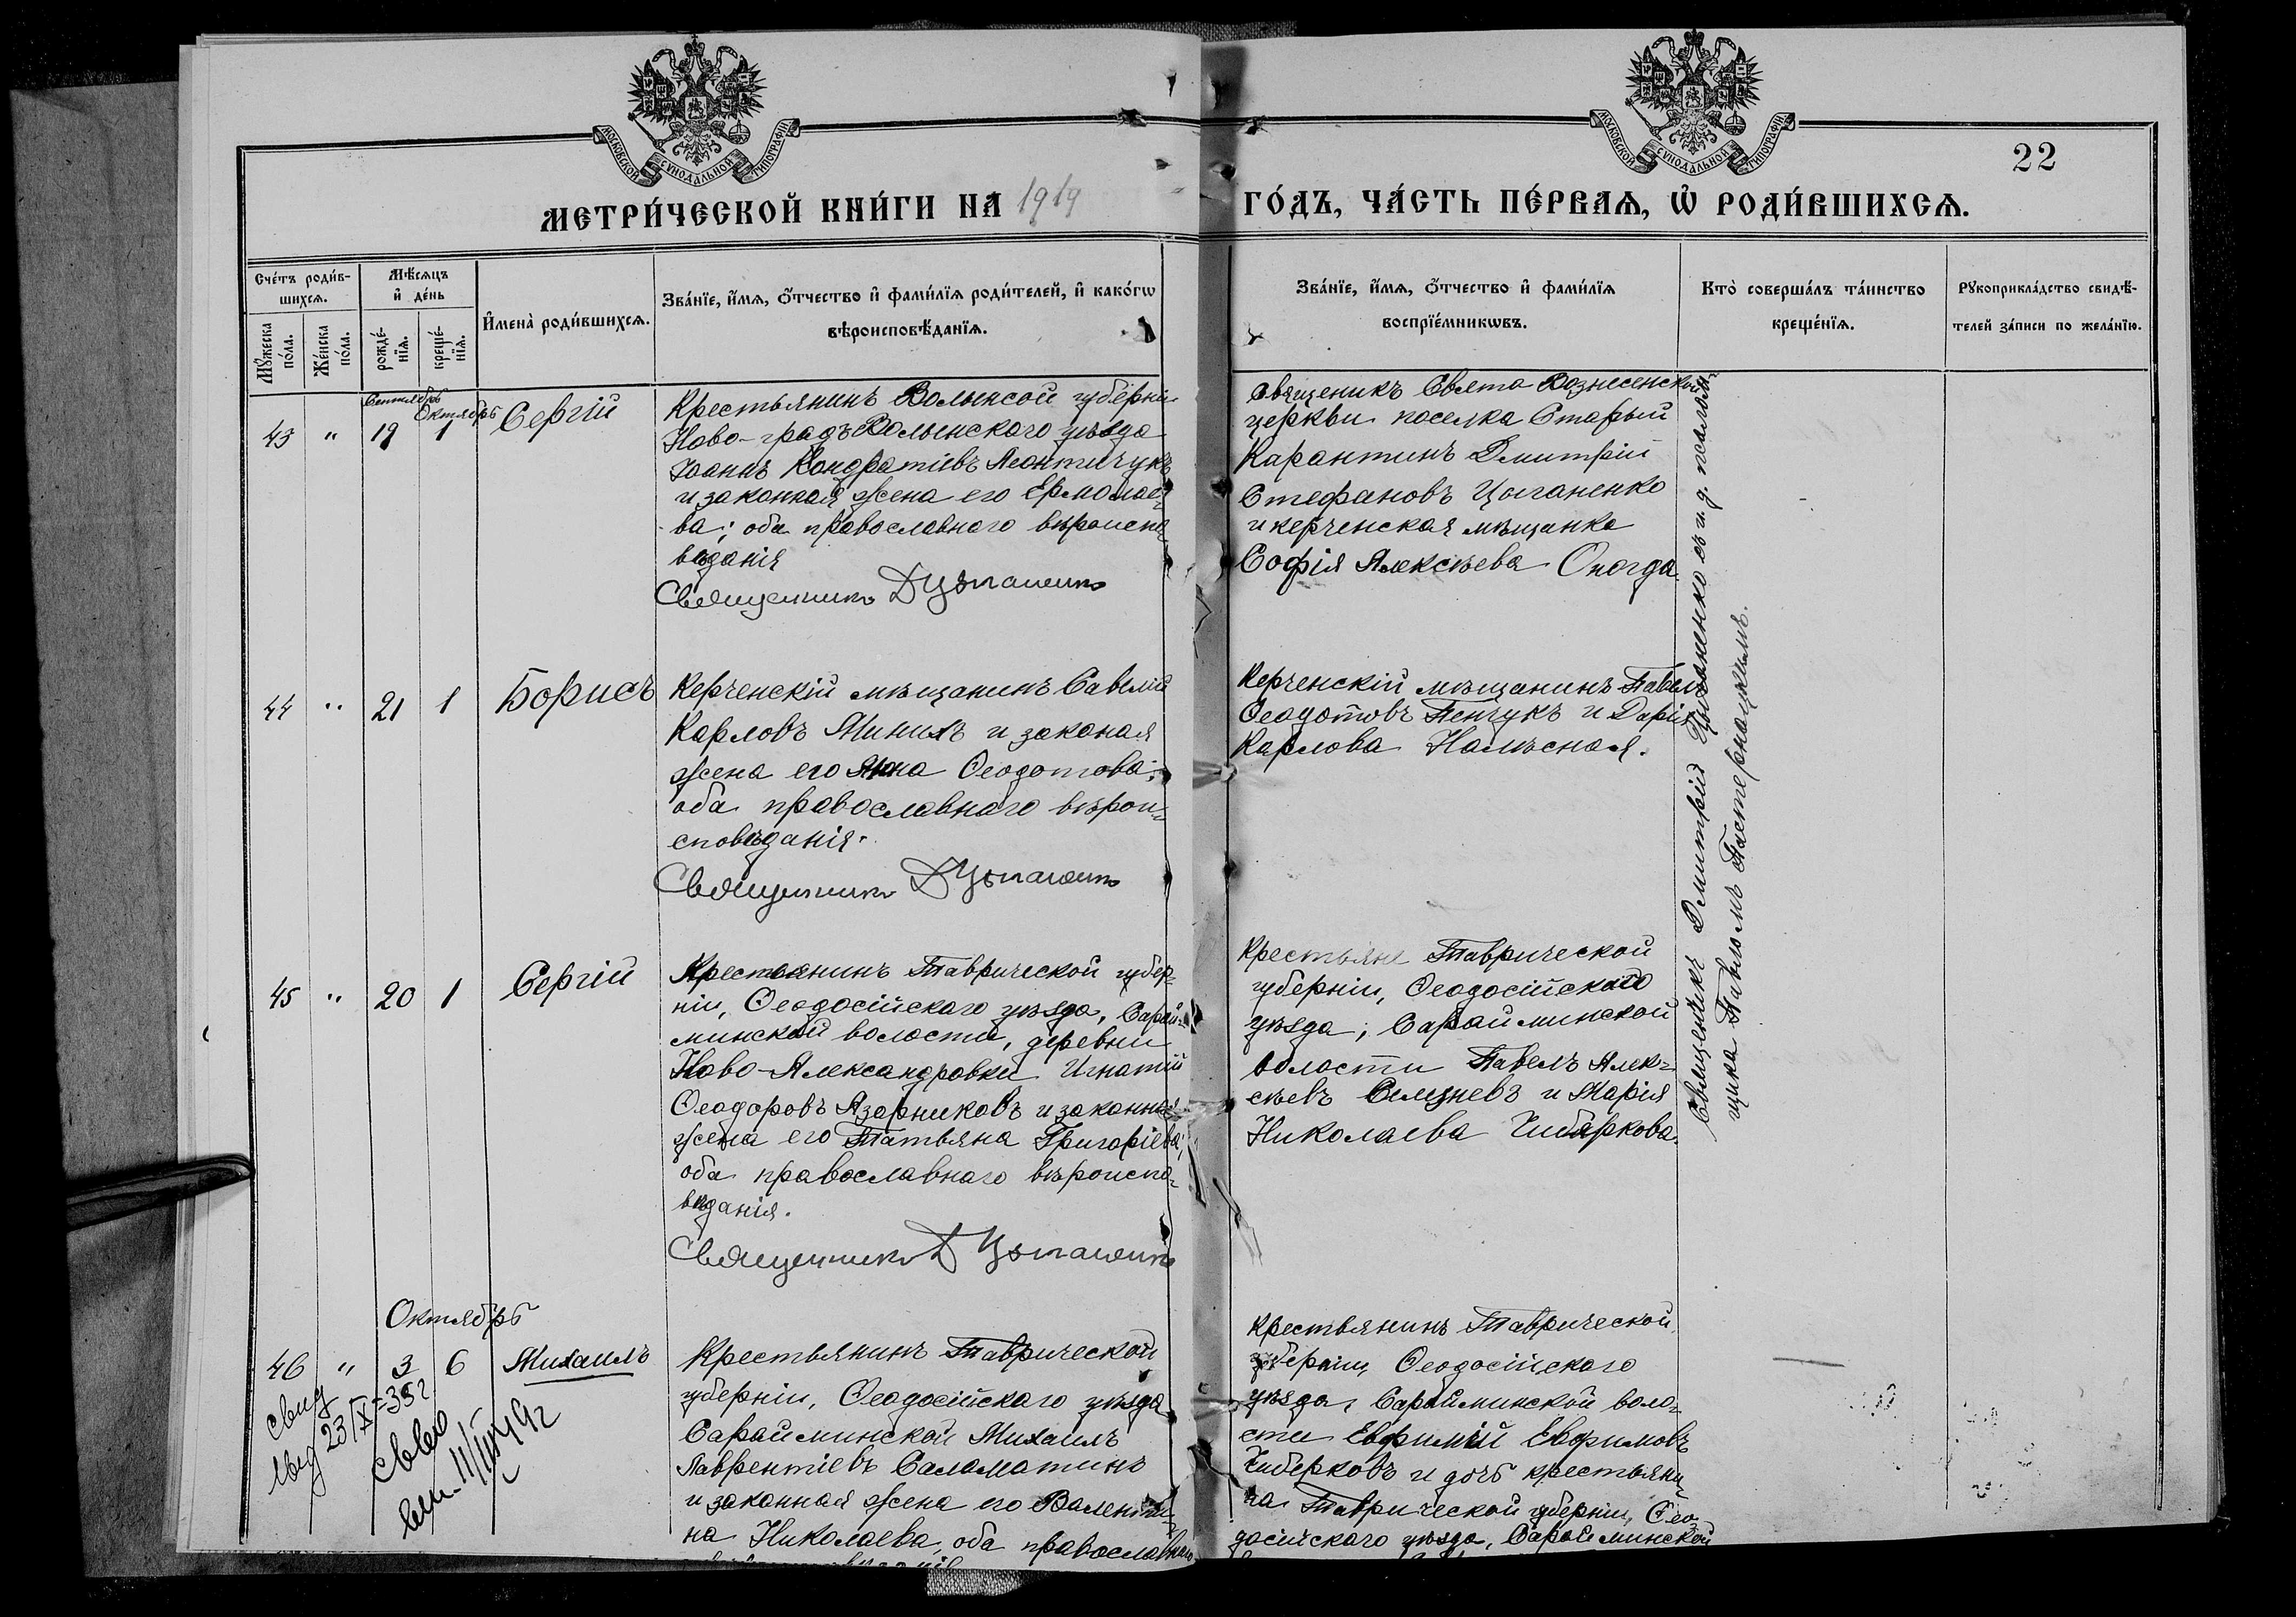 МОСКОВСКОЙ СѴНОДАЛЬНОЙ ТИПОГРАФІИ
МОСКОВСКОЙ СѴНОДАЛЬНОЙ ТИПОГРАФІИ
22
МЕТРИ́ЧЕСКОЙ КНИ́ГИ НА 1919 ГО́ДЪ, ЧА́СТЬ ПЕ́РВАѦ, Ѡ҆ РОДИ́ВШИХСѦ.
Сче́тъ роди́в-
шихсѧ.
Мꙋ́жеска
по́ла.
Же́нска
по́ла.
Мѣ́сѧцъ
и҆ де́нь
рожде́-
нїѧ.
креще́-
нїѧ.
И҆мена̀ роди́вшихсѧ.
Зва́нїе, и҆́мѧ, ѻ҆́тчество и҆ фами́лїѧ роди́телей, и҆ како́гѡ
вѣроисповѣ́данїѧ.
Зва́нїе, и҆́мѧ, ѻ҆́тчество и҆ фами́лїѧ
воспрїе́мникѡвъ.
Кто̀ соверша́лъ та́инство
креще́нїѧ.
Рꙋкоприкла́дство свидѣ́-
телей за́писи по жела́нїю.
Сентябрь
Октябрь
43 " 19 1 Сергій
Крестьянинъ Волынсой губерніи
Ново-градъ Волынскаго уѣзда
Іоаннъ Кондратіевъ Леонтичукъ
и законная жена его Ермолае-
ва; оба православнаго вѣроиспо-
вѣданія
Священникъ Д Цыганенко
Священикъ Свято Вознесенской
церкви поселка Старый
Карантинъ Дмитрій
Стефановъ Цыганенко
и керченская мѣщанка
Софія Алексѣева
44 " 21 1 Борисъ
Керченскій мѣщанинъ Савелій
Карловъ Минихъ и законая
жена его Анна Ѳеодотова;
оба православнаго вѣрои-
сповѣданія.
Священникъ Д Цыганенко
Керченскій мѣщанинъ Павелъ
Ѳеодотовъ Пенчукъ и Дарія
Карлова
45 " 20 1 Сергій
Крестьянинъ Таврической губер-
ніи, Ѳеодосійскаго уѣзда, Сарай-
минской волости, деревни
Ново-Александровки Игнатій
Ѳеодоровъ Азарниковъ и законная
жена его Татьяна Григоріева;
оба православнаго вѣроиспо-
вѣданія.
Священникъ Д Цыганенко
Крестьяне Таврической
губерніи, Ѳеодосійскаго
уѣзда, Сарайминской
волости Павелъ Алек-
сѣевъ Селезневъ и Марія
Николаева Чибаркова.
Священникъ Дмитрій Цыганенко съ и. д. псаломщика Павломъ
Октябрь
46 " 3 6 Михаилъ
свид
23/X-352
Крестьянинъ Таврической
губерніи, Ѳеодосійскаго уѣзда
Сарайминской Михаилъ
Лаврентіевъ Саламатинъ
и законная жена его Валенти-
на Николаева, оба православнаго
Крестьянинъ Таврической
губерніи, Ѳеодосійскаго
уѣзда, Сарайминской воло-
сти Евфимій Евфимовъ
Чиберковъ и дочь крестьяни-
на Таврической губерніи, Ѳео-
досійскаго уѣзда, Сарайминской